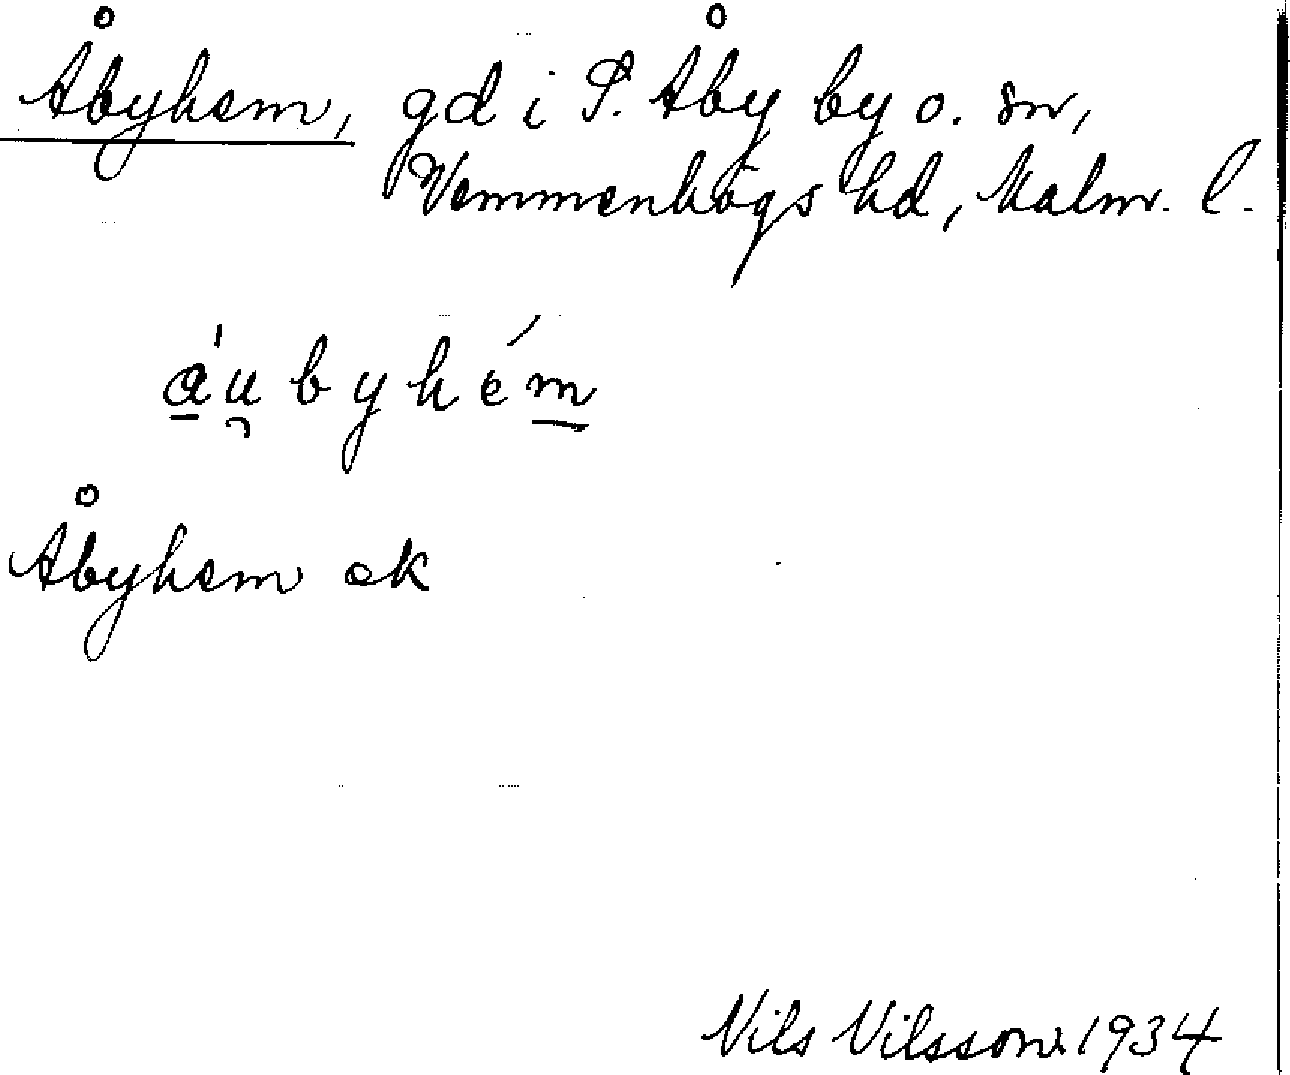 Åbyhem, gd i S. Åby by o. sn,
Vemmenhögs hd, Malm. l.
a̠'u̯byhém̠
Åbyhem ek
Nils Nilsson 1934